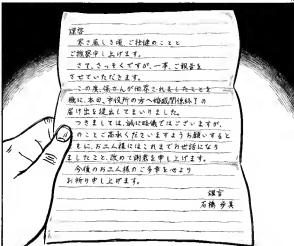 謹啓
寒さ厳しき頃、ご壮健のことと
ご推察申し上げます。
さて、さっそくですが、一筆、ご報告を
させていただきます。
この度、保さんが他界されましたことを
機に、本日、市役所の方へ姻戚関係終了の
届け出を提出してまいりました。
つきましては、誠に略儀ではございますが、
のことご高承くださいますようお願いすると
もに、お二人様にはこれまでお世話になり
ましたこと、改めて御礼を申し上げます。
今後のお二人様のご多幸を心より
お祈り申し上げます。
謹言
石橋 歩美